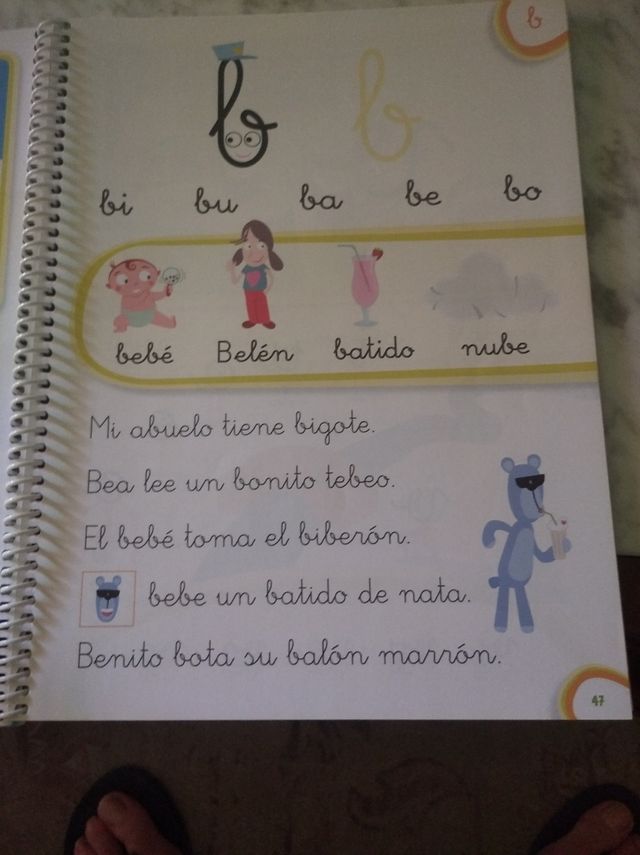 b
b b
bi bu ba be bo
bebé Belén batido nube
Mi abuelo tiene bigote.
Bea lee un bonito tebeo.
El bebé toma el biberón.
bebe un batido de nata.
Benito bota su balón marrón.
47